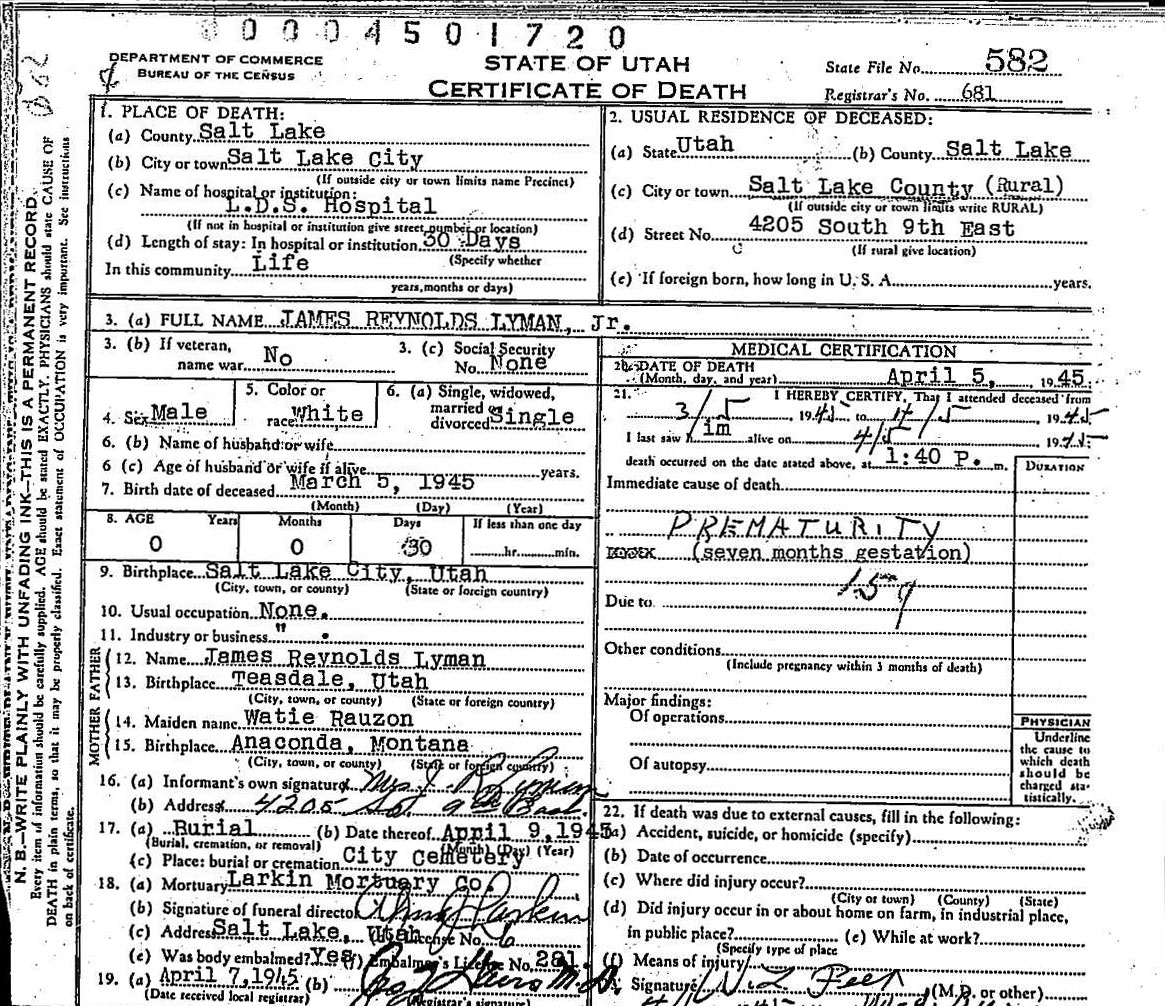 0004501720
DEPARTMENT OF COMMERCE
BUREAU OF THE CENSUS
STATE OF UTAH
CERTIFICATE OF DEATH
State File No. 582
Registrar's No. 681
N. B.—WRITE PLAINLY WITH UNFADING INK—THIS IS A PERMANENT RECORD.
Every item of information should be carefully supplied. AGE should be stated EXACTLY. PHYSICIANS should state CAUSE OF
DEATH in plain terms, so that it may be properly classified. Exact statement of OCCUPATION is very important. See instructions
on back of certificate.
1. PLACE OF DEATH:
(a) County Salt Lake
(b) City or town Salt Lake City
(If outside city or town limits name Precinct)
(c) Name of hospital or institution:
L.D.S. Hospital
(If not in hospital or institution give street number or location)
(d) Length of stay: In hospital or institution 30 Days
(Specify whether
In this community Life
years, months or days)
2. USUAL RESIDENCE OF DECEASED:
(a) State Utah (b) County Salt Lake
(c) City or town Salt Lake County (Rural)
(If outside city or town limits write RURAL)
(d) Street No. 4205 South 9th East
(If rural give location)
(e) If foreign born, how long in U. S. A. years.
3. (a) FULL NAME JAMES REYNOLDS LYMAN, Jr.
3. (b) If veteran, name war No
3. (c) Social Security No. None
4. Sex Male
5. Color or race White
6. (a) Single, widowed, married or divorced Single
6. (b) Name of husband or wife
6 (c) Age of husband or wife if alive years.
7. Birth date of deceased March 5, 1945
(Month) (Day) (Year)
8. AGE Years Months Days If less than one day
0 0 30 hr. min.
9. Birthplace Salt Lake City, Utah
(City, town, or county) (State or foreign country)
10. Usual occupation None.
11. Industry or business " .
FATHER
12. Name James Reynolds Lyman
13. Birthplace Teasdale, Utah
(City, town, or county) (State or foreign country)
MOTHER
14. Maiden name Watie Rauzon
15. Birthplace Anaconda, Montana
(City, town, or county) (State or foreign country)
16. (a) Informant's own signature Mrs J. R. Lyman
(b) Address 4205 So. 9th East
17. (a) Burial (b) Date thereof April 9, 1945
(Burial, cremation, or removal) (Month) (Day) (Year)
(c) Place: burial or cremation City Cemetery
18. (a) Mortuary Larkin Mortuary Co.
(b) Signature of funeral director Larkin
(c) Address Salt Lake, Utah License No. 6
(e) Was body embalmed? Yes (f) Embalmer's License No. 281
19. (a) April 7, 1945 (b) M.D.
(Date received local registrar) (Registrar's signature)
MEDICAL CERTIFICATION
20. DATE OF DEATH
(Month, day, and year) April 5, 1945
21. I HEREBY CERTIFY, That I attended deceased from
3/5 1945 to 4/5 1945
I last saw him alive on 4/5 1945
death occurred on the date stated above, at 1:40 P. m.
DURATION
Immediate cause of death
PREMATURITY
(seven months gestation)
159
Due to
Other conditions
(Include pregnancy within 3 months of death)
Major findings:
Of operations
Of autopsy
PHYSICIAN
Underline
the cause to
which death
should be
charged sta-
tistically.
22. If death was due to external causes, fill in the following:
(a) Accident, suicide, or homicide (specify)
(b) Date of occurrence
(c) Where did injury occur?
(City or town) (County) (State)
(d) Did injury occur in or about home on farm, in industrial place,
in public place? (e) While at work?
(Specify type of place
(f) Means of injury
Signature (M.D. or other)